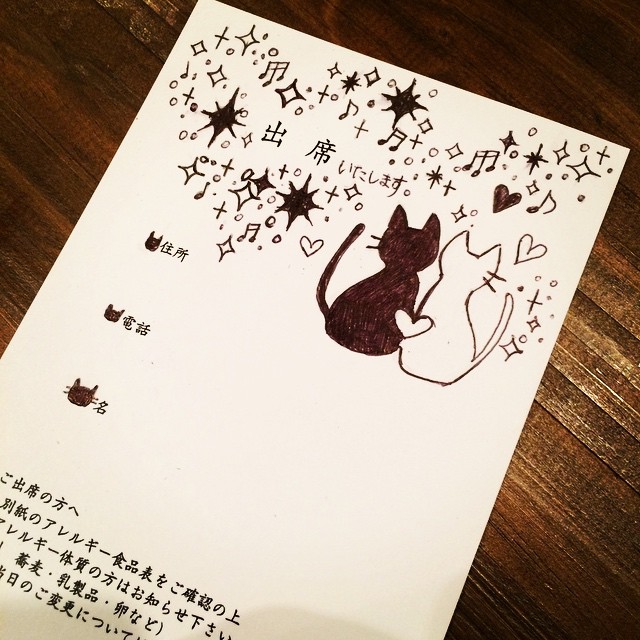 出席いたします。
住所
電話
名
ご出席の方へ
別紙のアレルギー食品表をご確認の上
アレルギー体質の方はお知らせ下さい
蕎麦・乳製品・卵など)
当日のご変更について